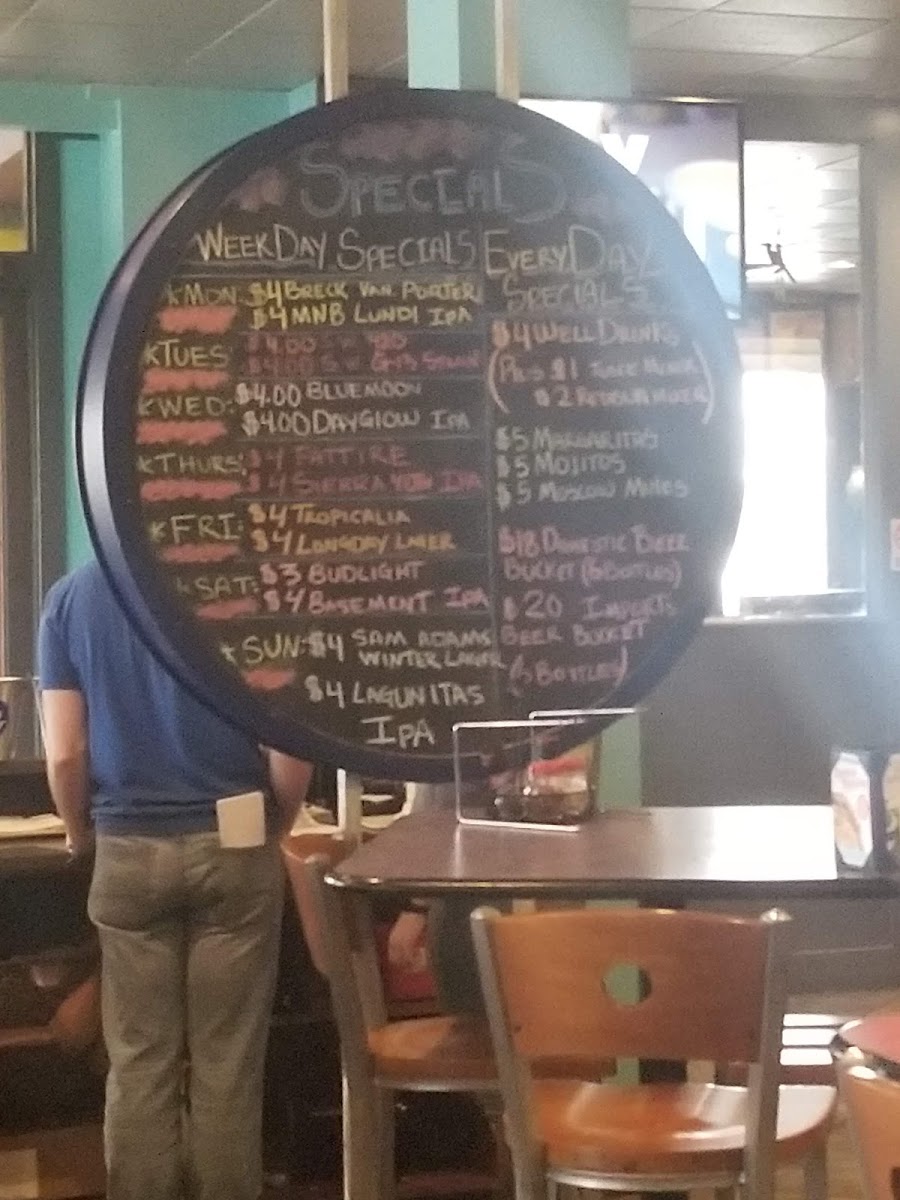 SPECIALS
WEEKDAY SPECIALS
*MON: $4 BRECK VAN PORTER
$4 MNB LUNDI IPA
*TUES: $4.00
$4.00
*WED: $4.00 BLUEMOON
$4.00 DAYGLOW IPA
*THURS: $4 FATTIRE
$4 SIERRA IPA
*FRI: $4 TROPICALIA
$4 LONGDAY LAGER
*SAT: $3 BUDLIGHT
$4 BASEMENT IPA
*SUN: $4 SAM ADAMS
WINTER LAGER
$4 LAGUNITAS
IPA
EVERYDAY
SPECIALS
$4 WELL DRINKS
(PLUS $1 JUICE MIXER
$2 REDBULL MIXER)
$5 MARGARITAS
$5 MOJITOS
$5 MOSCOW MULES
$18 DOMESTIC BEER
BUCKET (6 BOTTLES)
$20 IMPORT
BEER BUCKET
(6 BOTTLES)